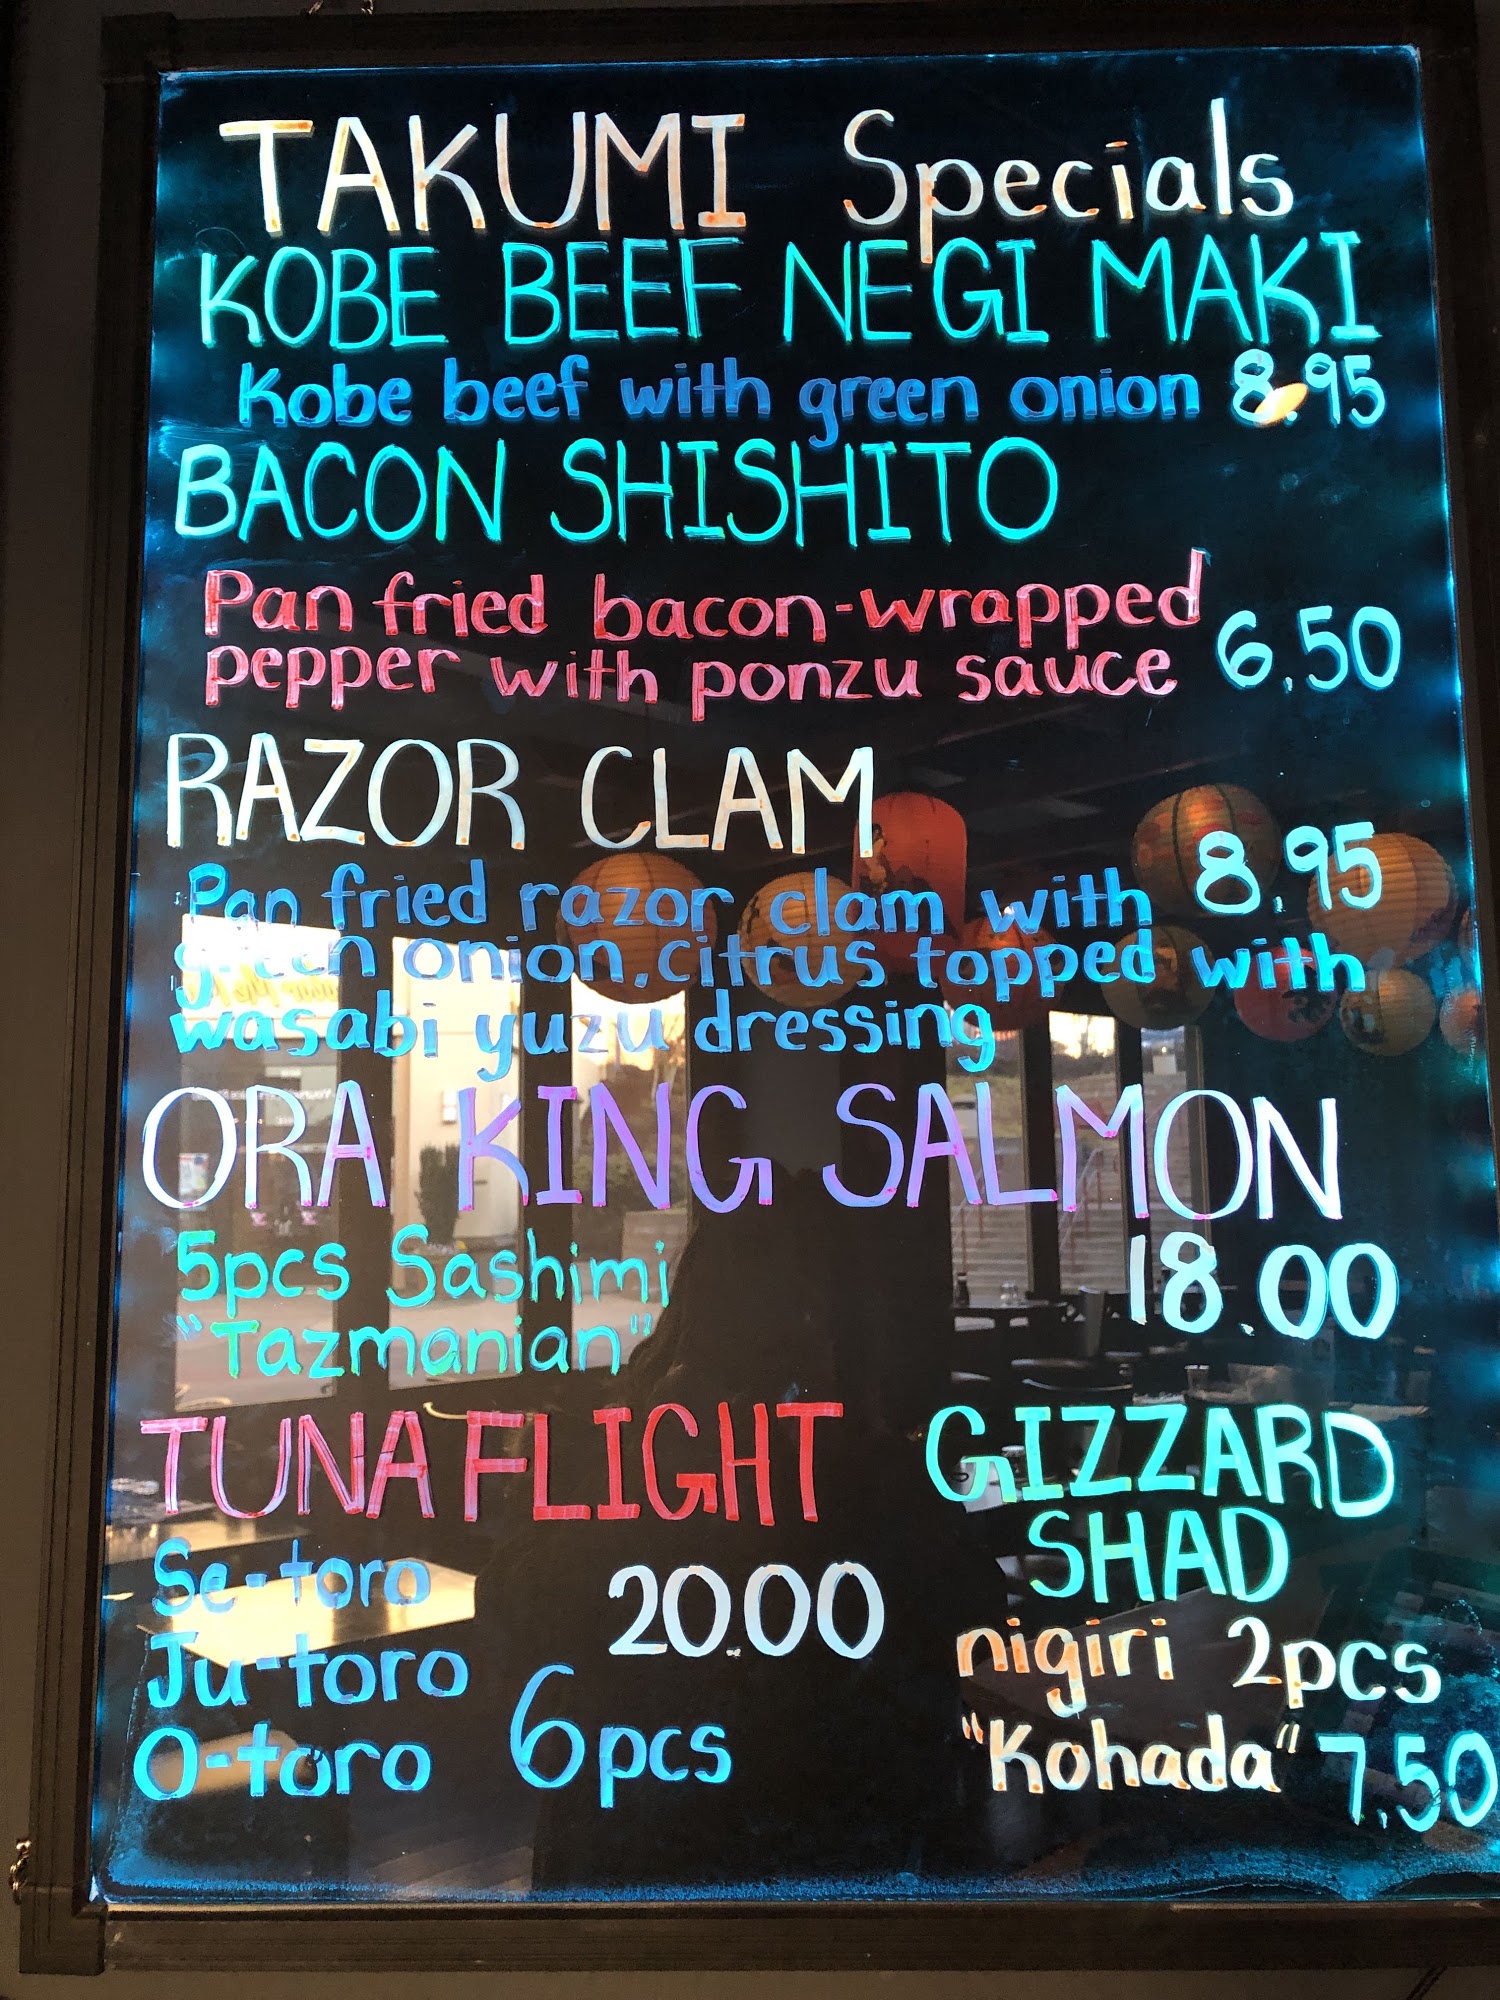 TAKUMI Specials
KOBE BEEF NEGI MAKI
Kobe beef with green onion 8.95
BACON SHISHITO
Pan fried bacon-wrapped
pepper with ponzu sauce 6.50
RAZOR CLAM
Pan fried razor clam with 8.95
green onion, citrus topped with
wasabi yuzu dressing
ORA KING SALMON
5pcs Sashimi 18.00
"Tazmanian"
TUNA FLIGHT
Se-toro 20.00
Ju-toro
O-toro 6pcs
GIZZARD
SHAD
nigiri 2pcs
"Kohada" 7.50